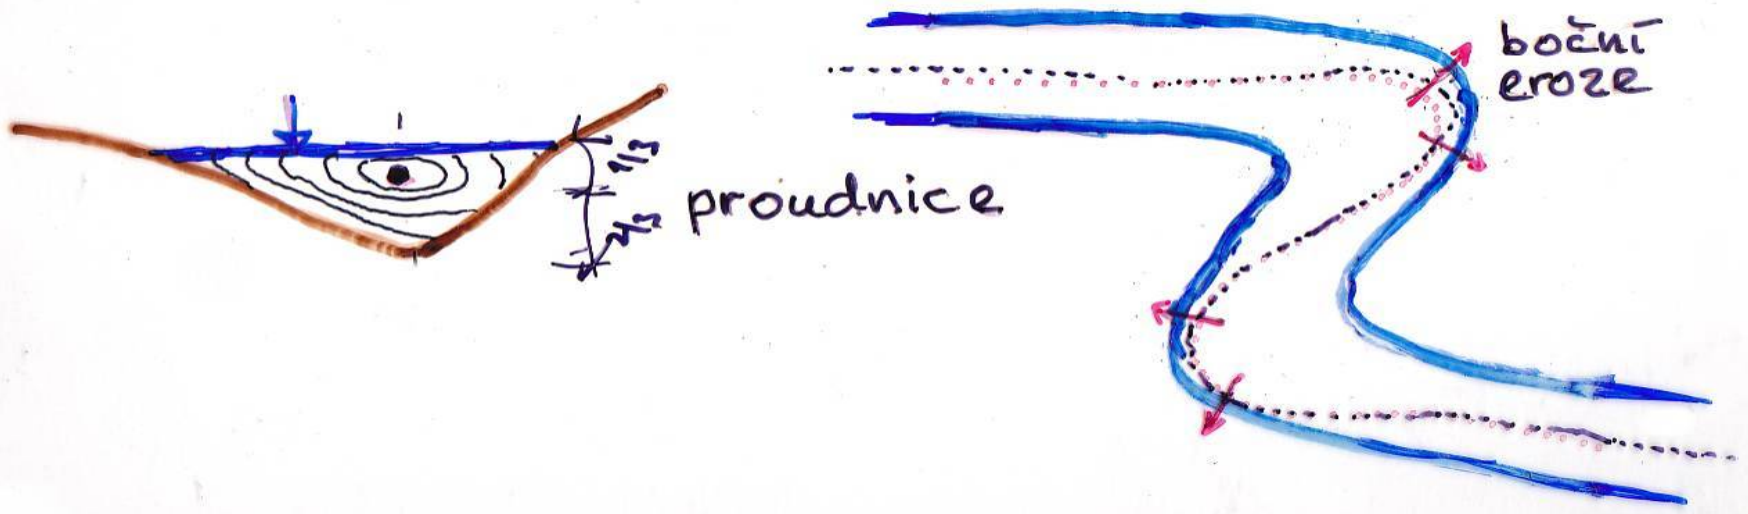 1/3
2/3
proudnice
boční
eroze